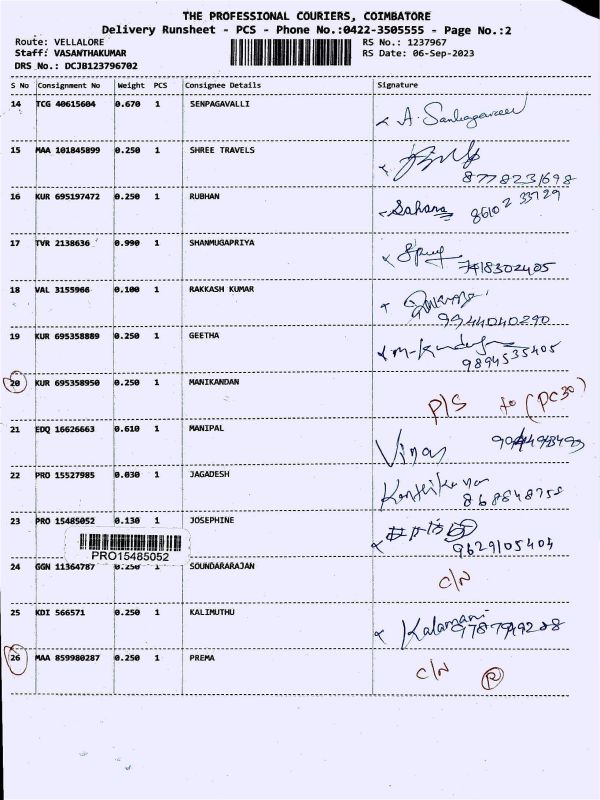 THE PROFESSIONAL COURIERS, COIMBATORE
Delivery Runsheet - PCS - Phone No.:0422-3505555 - Page No.:2
Route: VELLALORE RS No.: 1237967
Staff: VASANTHAKUMAR RS Date: 06-Sep-2023
DRS No.: DCJB123796702
S No Consignment No Weight PCS Consignee Details Signature
14 TCG 40615604 0.670 1 SENPAGAVALLI
15 MAA 101845899 0.250 1 SHREE TRAVELS
8778231698
16 KUR 695197472 0.250 1 RUBHAN
Sahana 86102 33729
17 TVR 2138636 0.990 1 SHANMUGAPRIYA
7418302405
18 VAL 3155966 0.100 1 RAKKASH KUMAR
9944040290
19 KUR 695358889 0.250 1 GEETHA
9894535405
20 KUR 695358950 0.250 1 MANIKANDAN
P/S to (PC30)
21 EDQ 16626663 0.610 1 MANIPAL
22 PRO 15527985 0.030 1 JAGADESH
23 PRO 15485052 0.130 1 JOSEPHINE
9629105404
PRO15485052
24 GGN 11364787 0.250 1 SOUNDARARAJAN
C/N
25 KDI 566571 0.250 1 KALIMUTHU
Kalamani
26 MAA 859980287 0.250 1 PREMA
C/N R